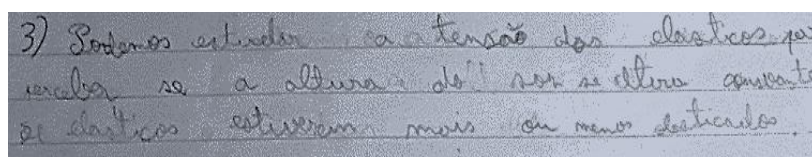 3) Podemos estudar a tensão dos elasticos pa
perceber se a altura do som se altera consoante
os elasticos estiverem mais ou menos esticados.